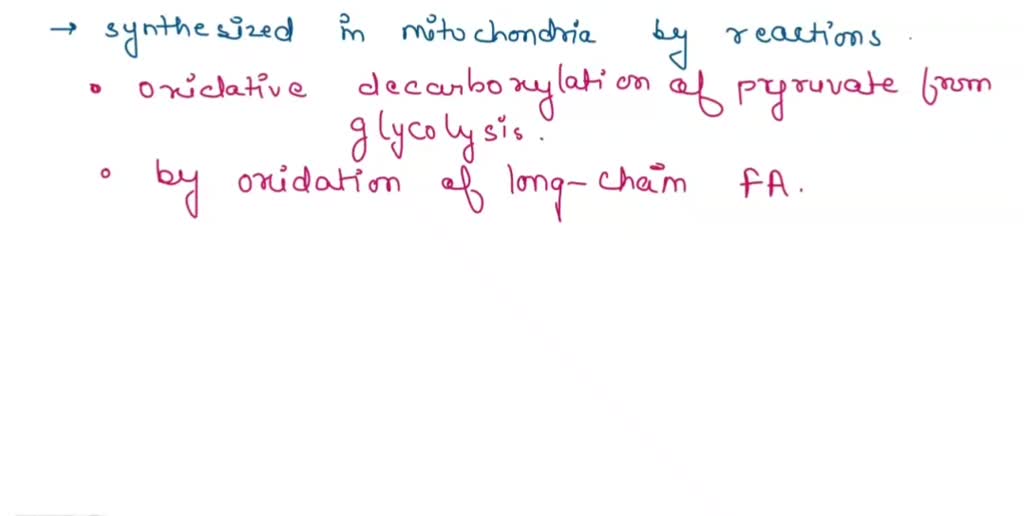 → synthesized in mitochondria by reactions.
• oxidative decarboxylation of pyruvate from
glycolysis.
• by oxidation of long-chain FA.